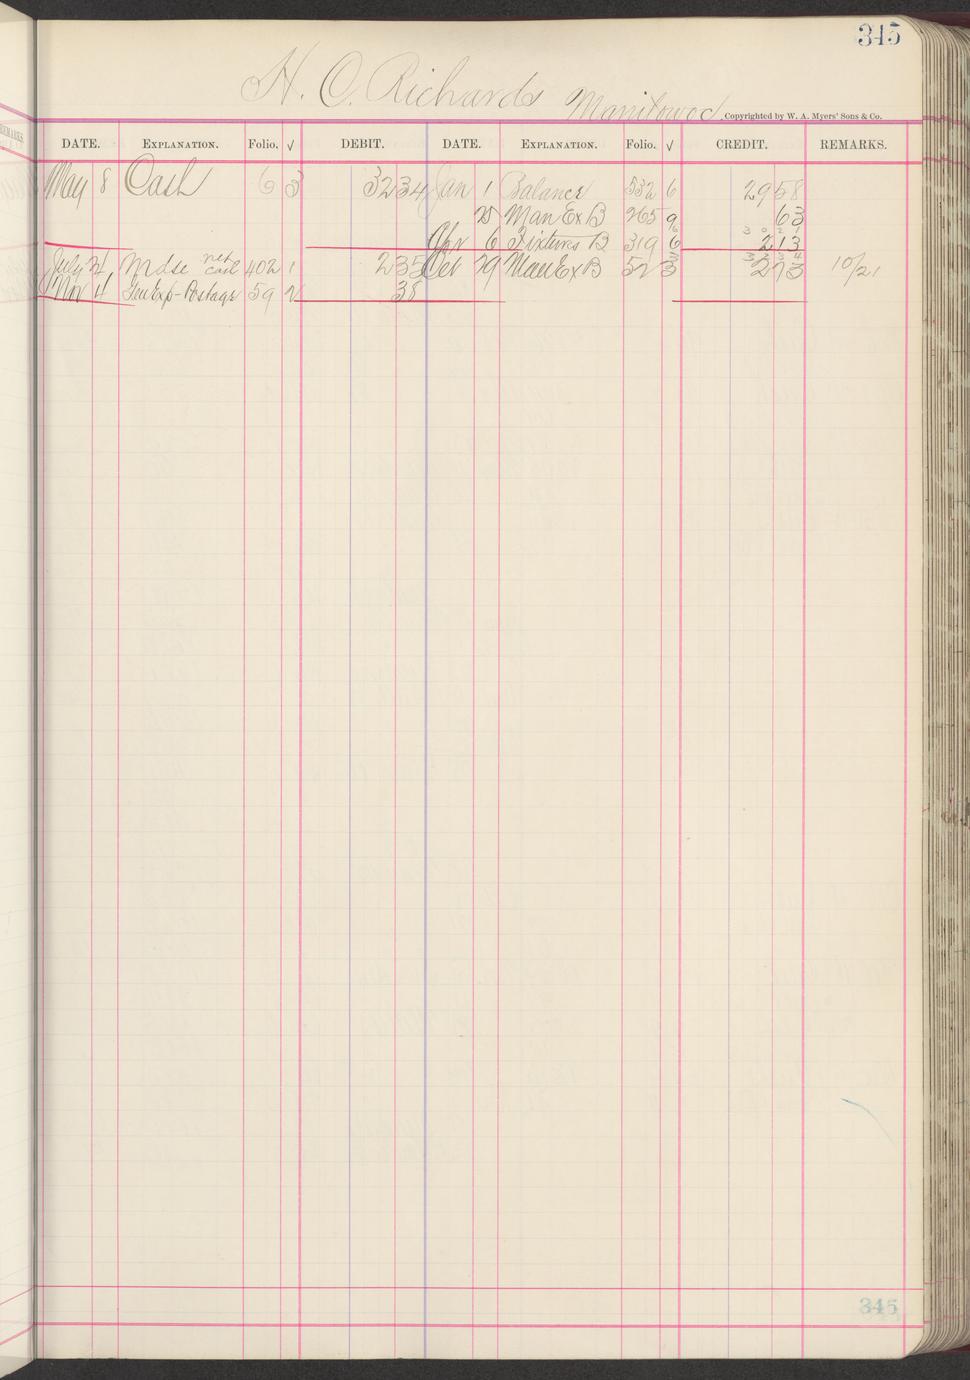 345
H. C. Richards Manitowoc
Copyrighted by W. A. Myers' Sons & Co.
REMARKS
DATE. EXPLANATION. Folio. √ DEBIT. DATE. EXPLANATION. Folio. √ CREDIT. REMARKS.
May 8 Cash 6 3 3234 Jan 1 Balance 532 6 2958
25 Man Ex B 265 9 63
Apr 6 Fixtures B 319 6 213
July 24 Mdse net cash 402 1 235 Oct 29 Man Ex B 52 3 273 10/21
Nov 4 Gen Exp-Postage 59 2 38
345